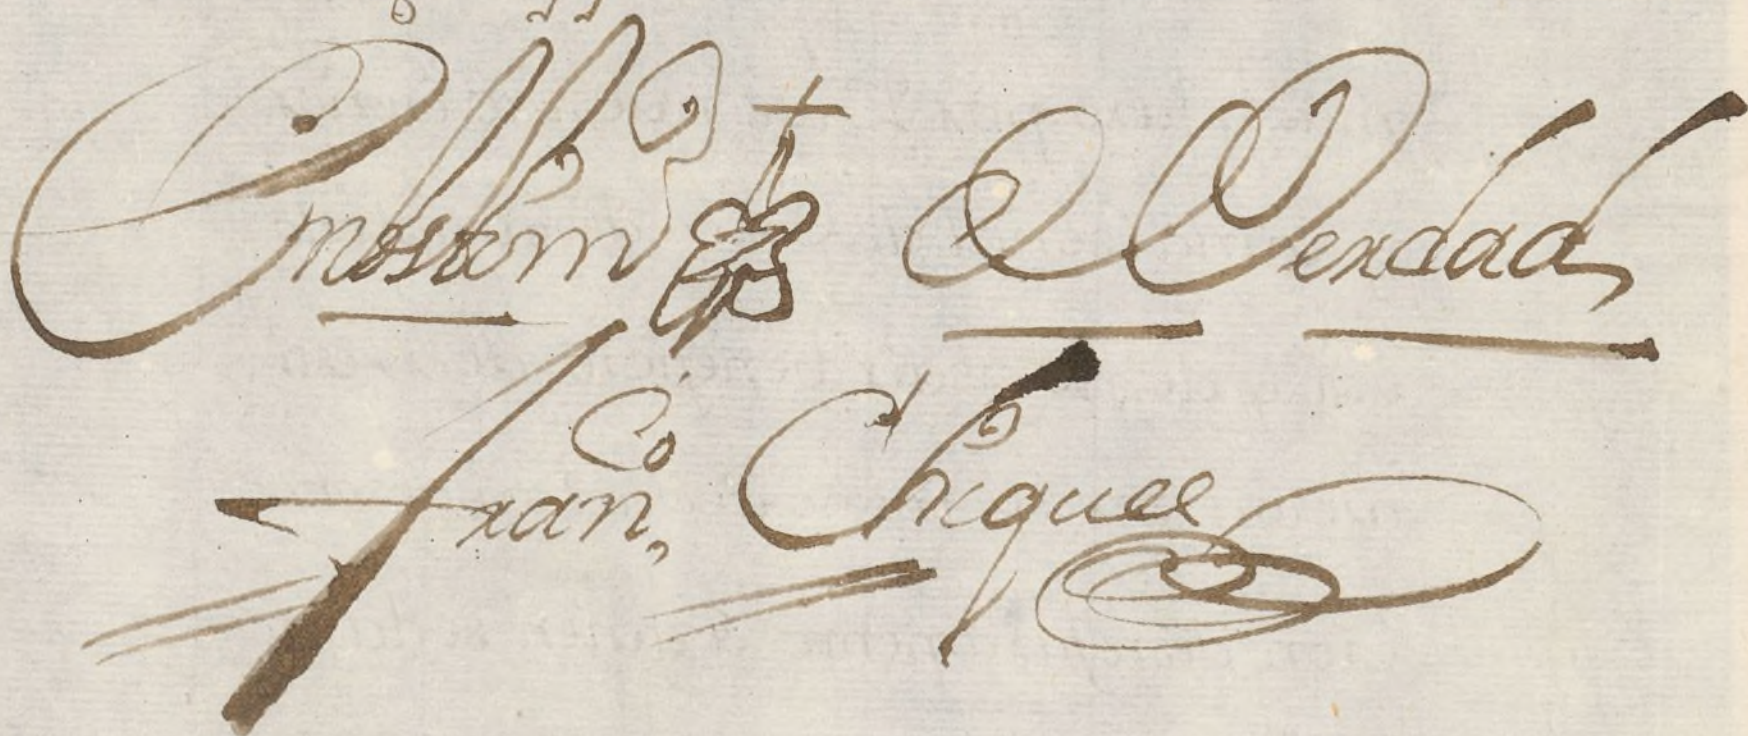 En testim° de Verdad
Fran.co Chiquee